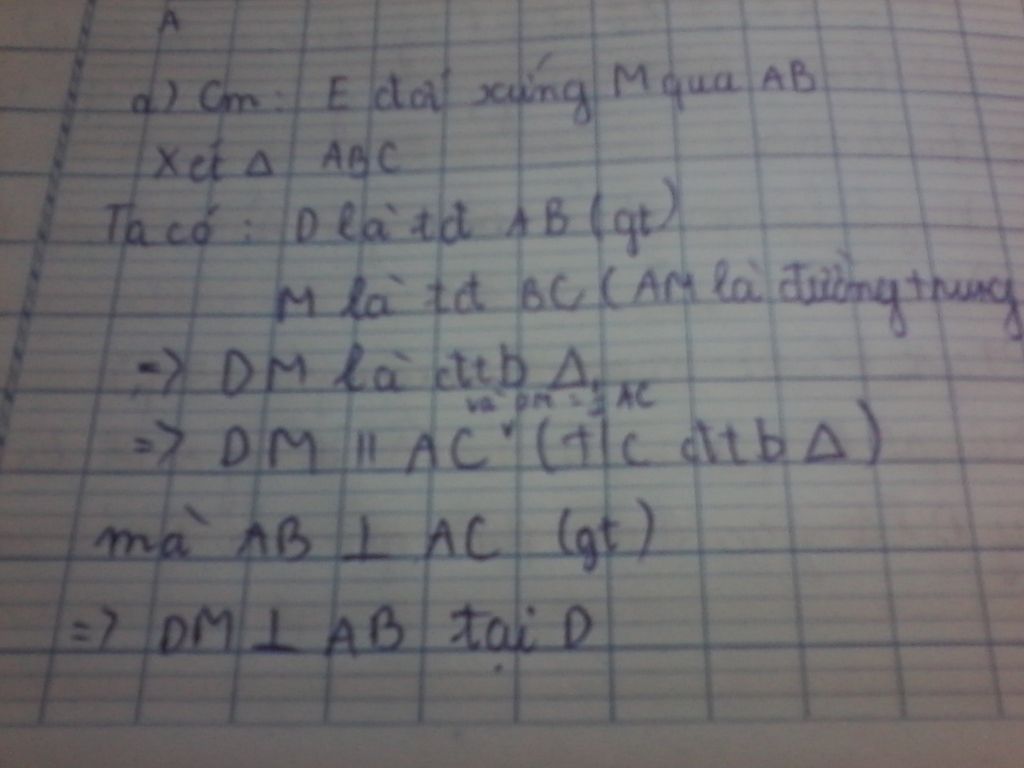 A
a) Cm: E đối xứng M qua AB
Xét Δ ABC
Ta có: D là tđ AB (gt)
M là tđ BC (AM là đường trung
=> DM là đttb Δ
và DM = ½ AC
=> DM // AC (t/c đttb Δ)
mà AB ⊥ AC (gt)
=> DM ⊥ AB tại D